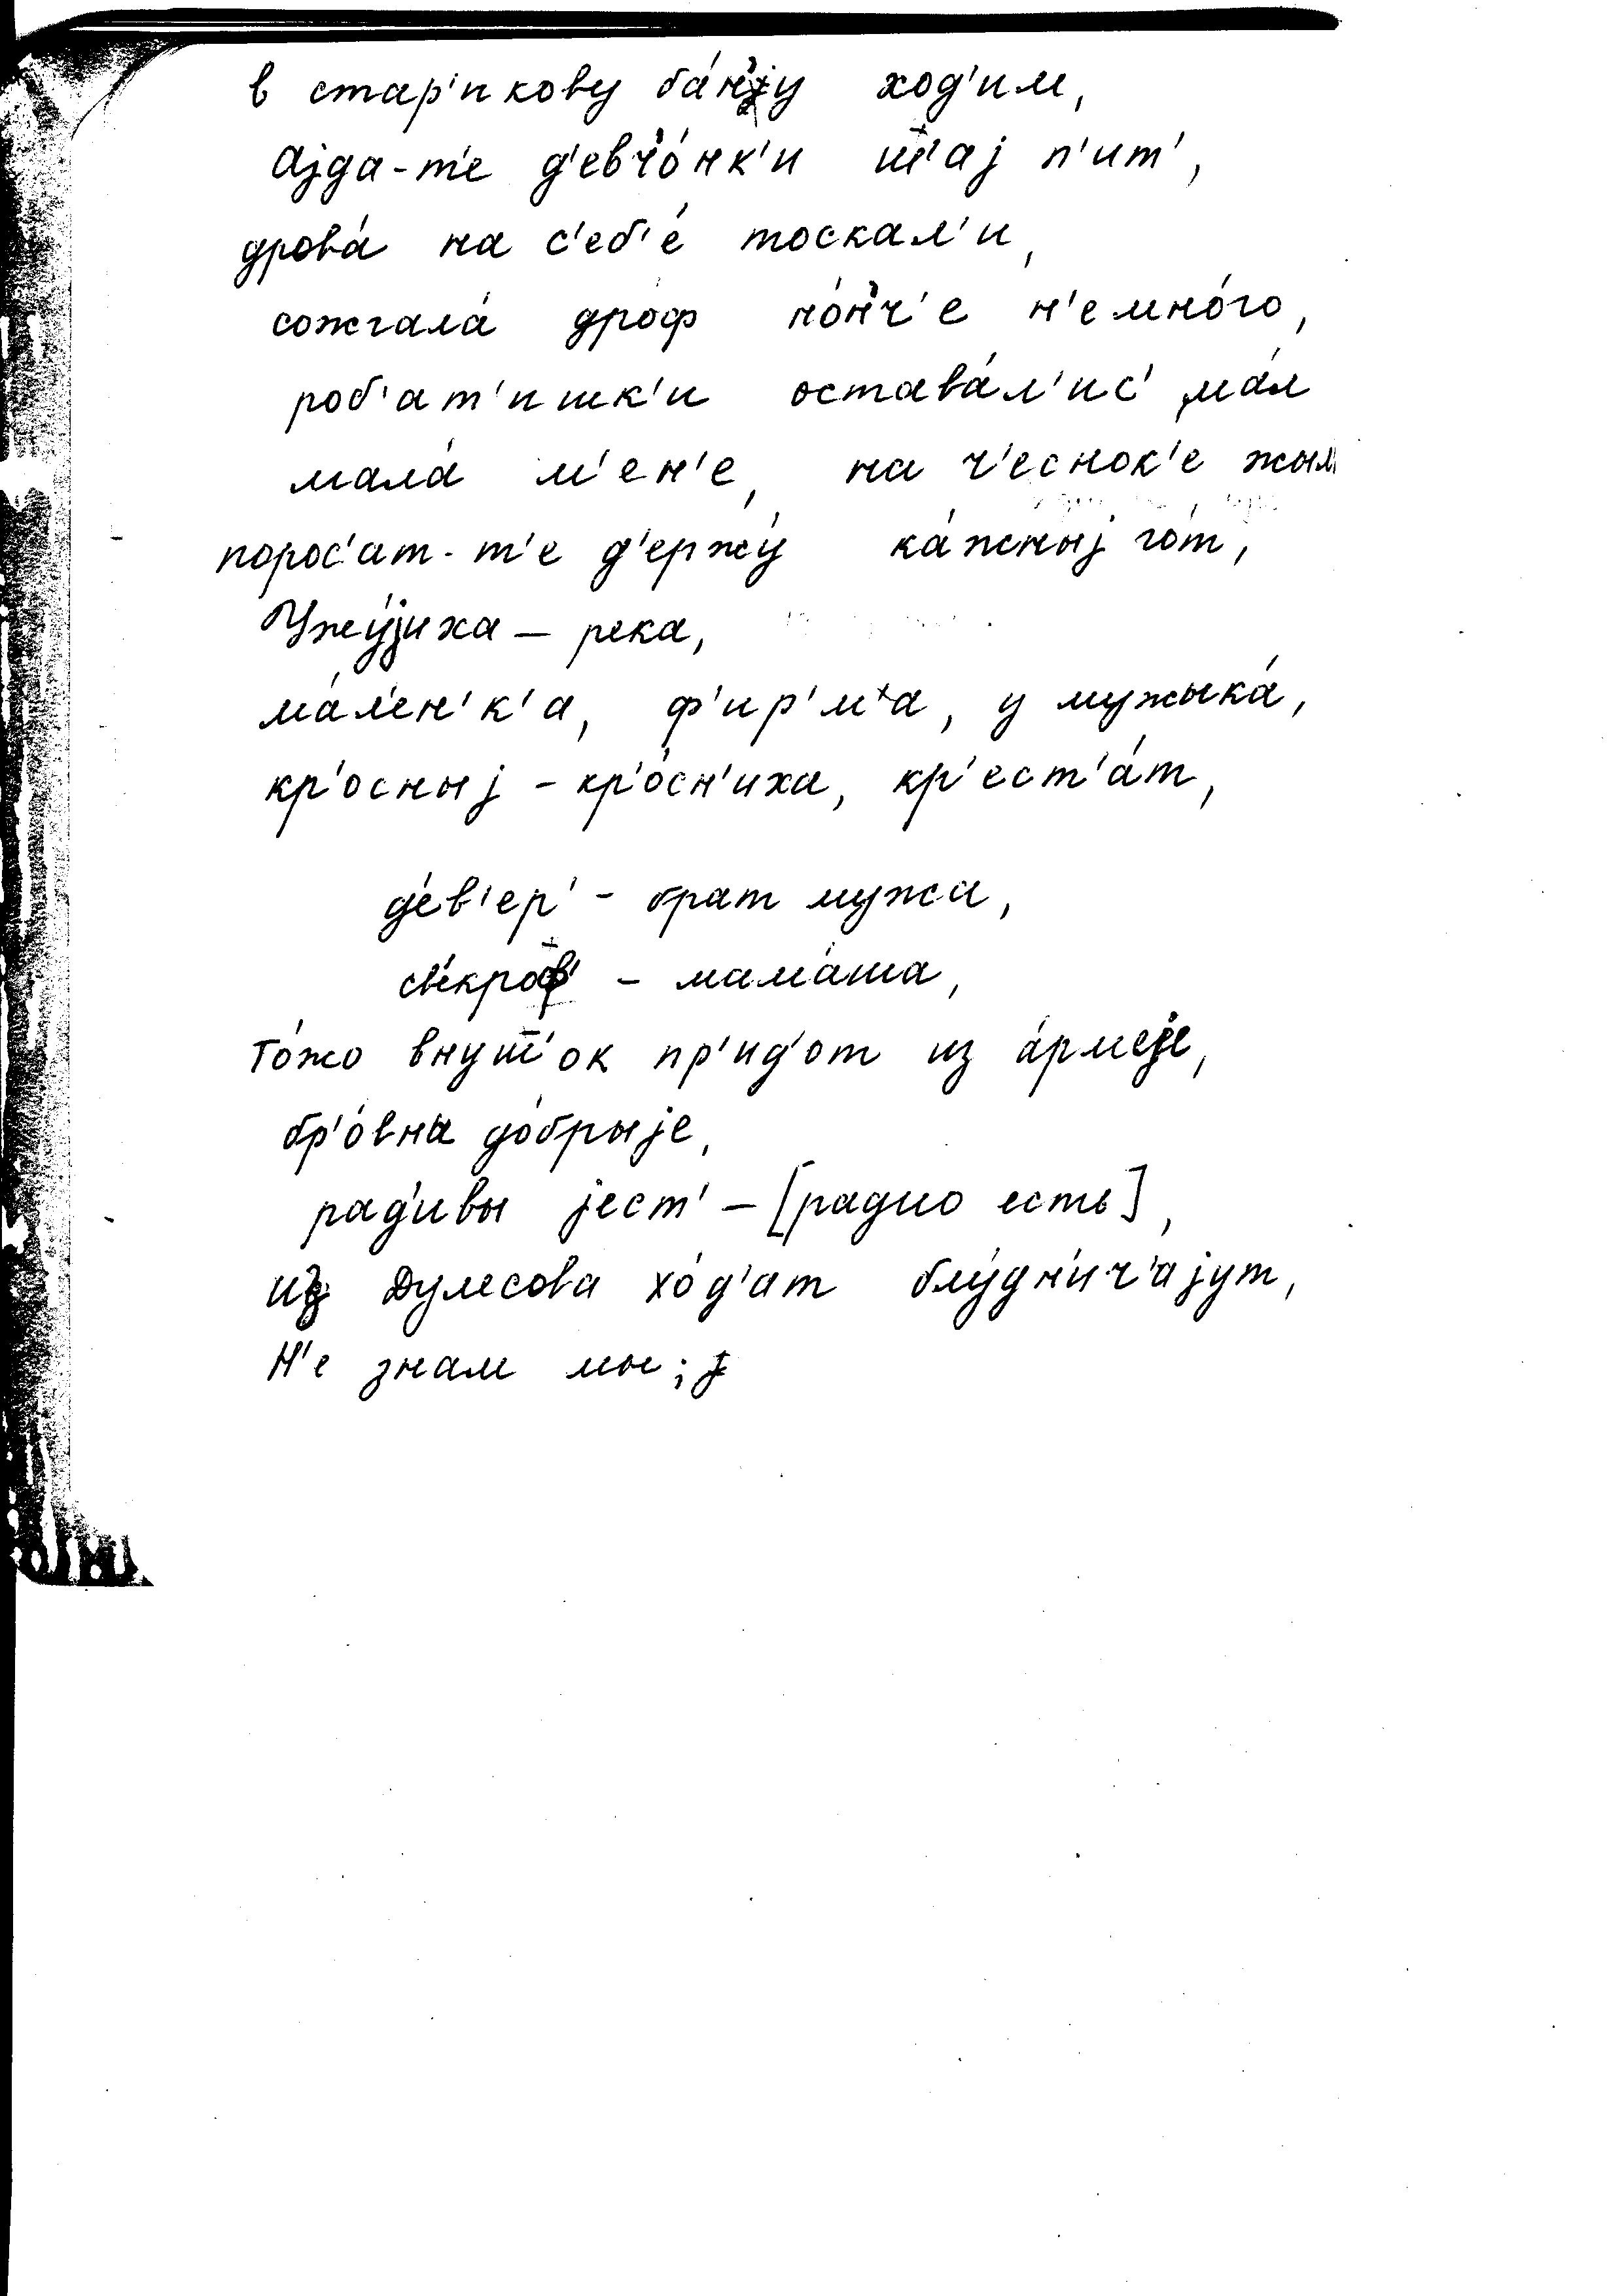 в стар'икову ба́н'jу ход'им,
Аjда-т'е д'евч'о́нк'и ш̅'аj п'ит',
дрова́ на с'еб'е́ тоскал'и,
сожгала́ дро́ф но́н'ч'е н'емно́го,
роб'ат'ишк'и остава́л'ис' ма́л
мала́ м'ен'е, на ч'еснок'е жыл
порос'ат-т'е д'ержу́ ка́жныj го́т,
Ужу́jиха – река,
ма́л'ен'к'а, ф'ир'м'а, у мужыка́,
кр'осныj – кр'о́сн'иха, кр'ест'а́т,
д'е́в'ер' – брат мужа,
св'екро́ф' – мама́ша,
То́жо внуш̅'ок пр'ид'от из а́рмеjе,
бр'о́вна до́брыjе,
рад'ивы jест' – [радио есть],
из Думесова хо́д'ат блу́дн'ич'аjут,
Н'е знам мы;